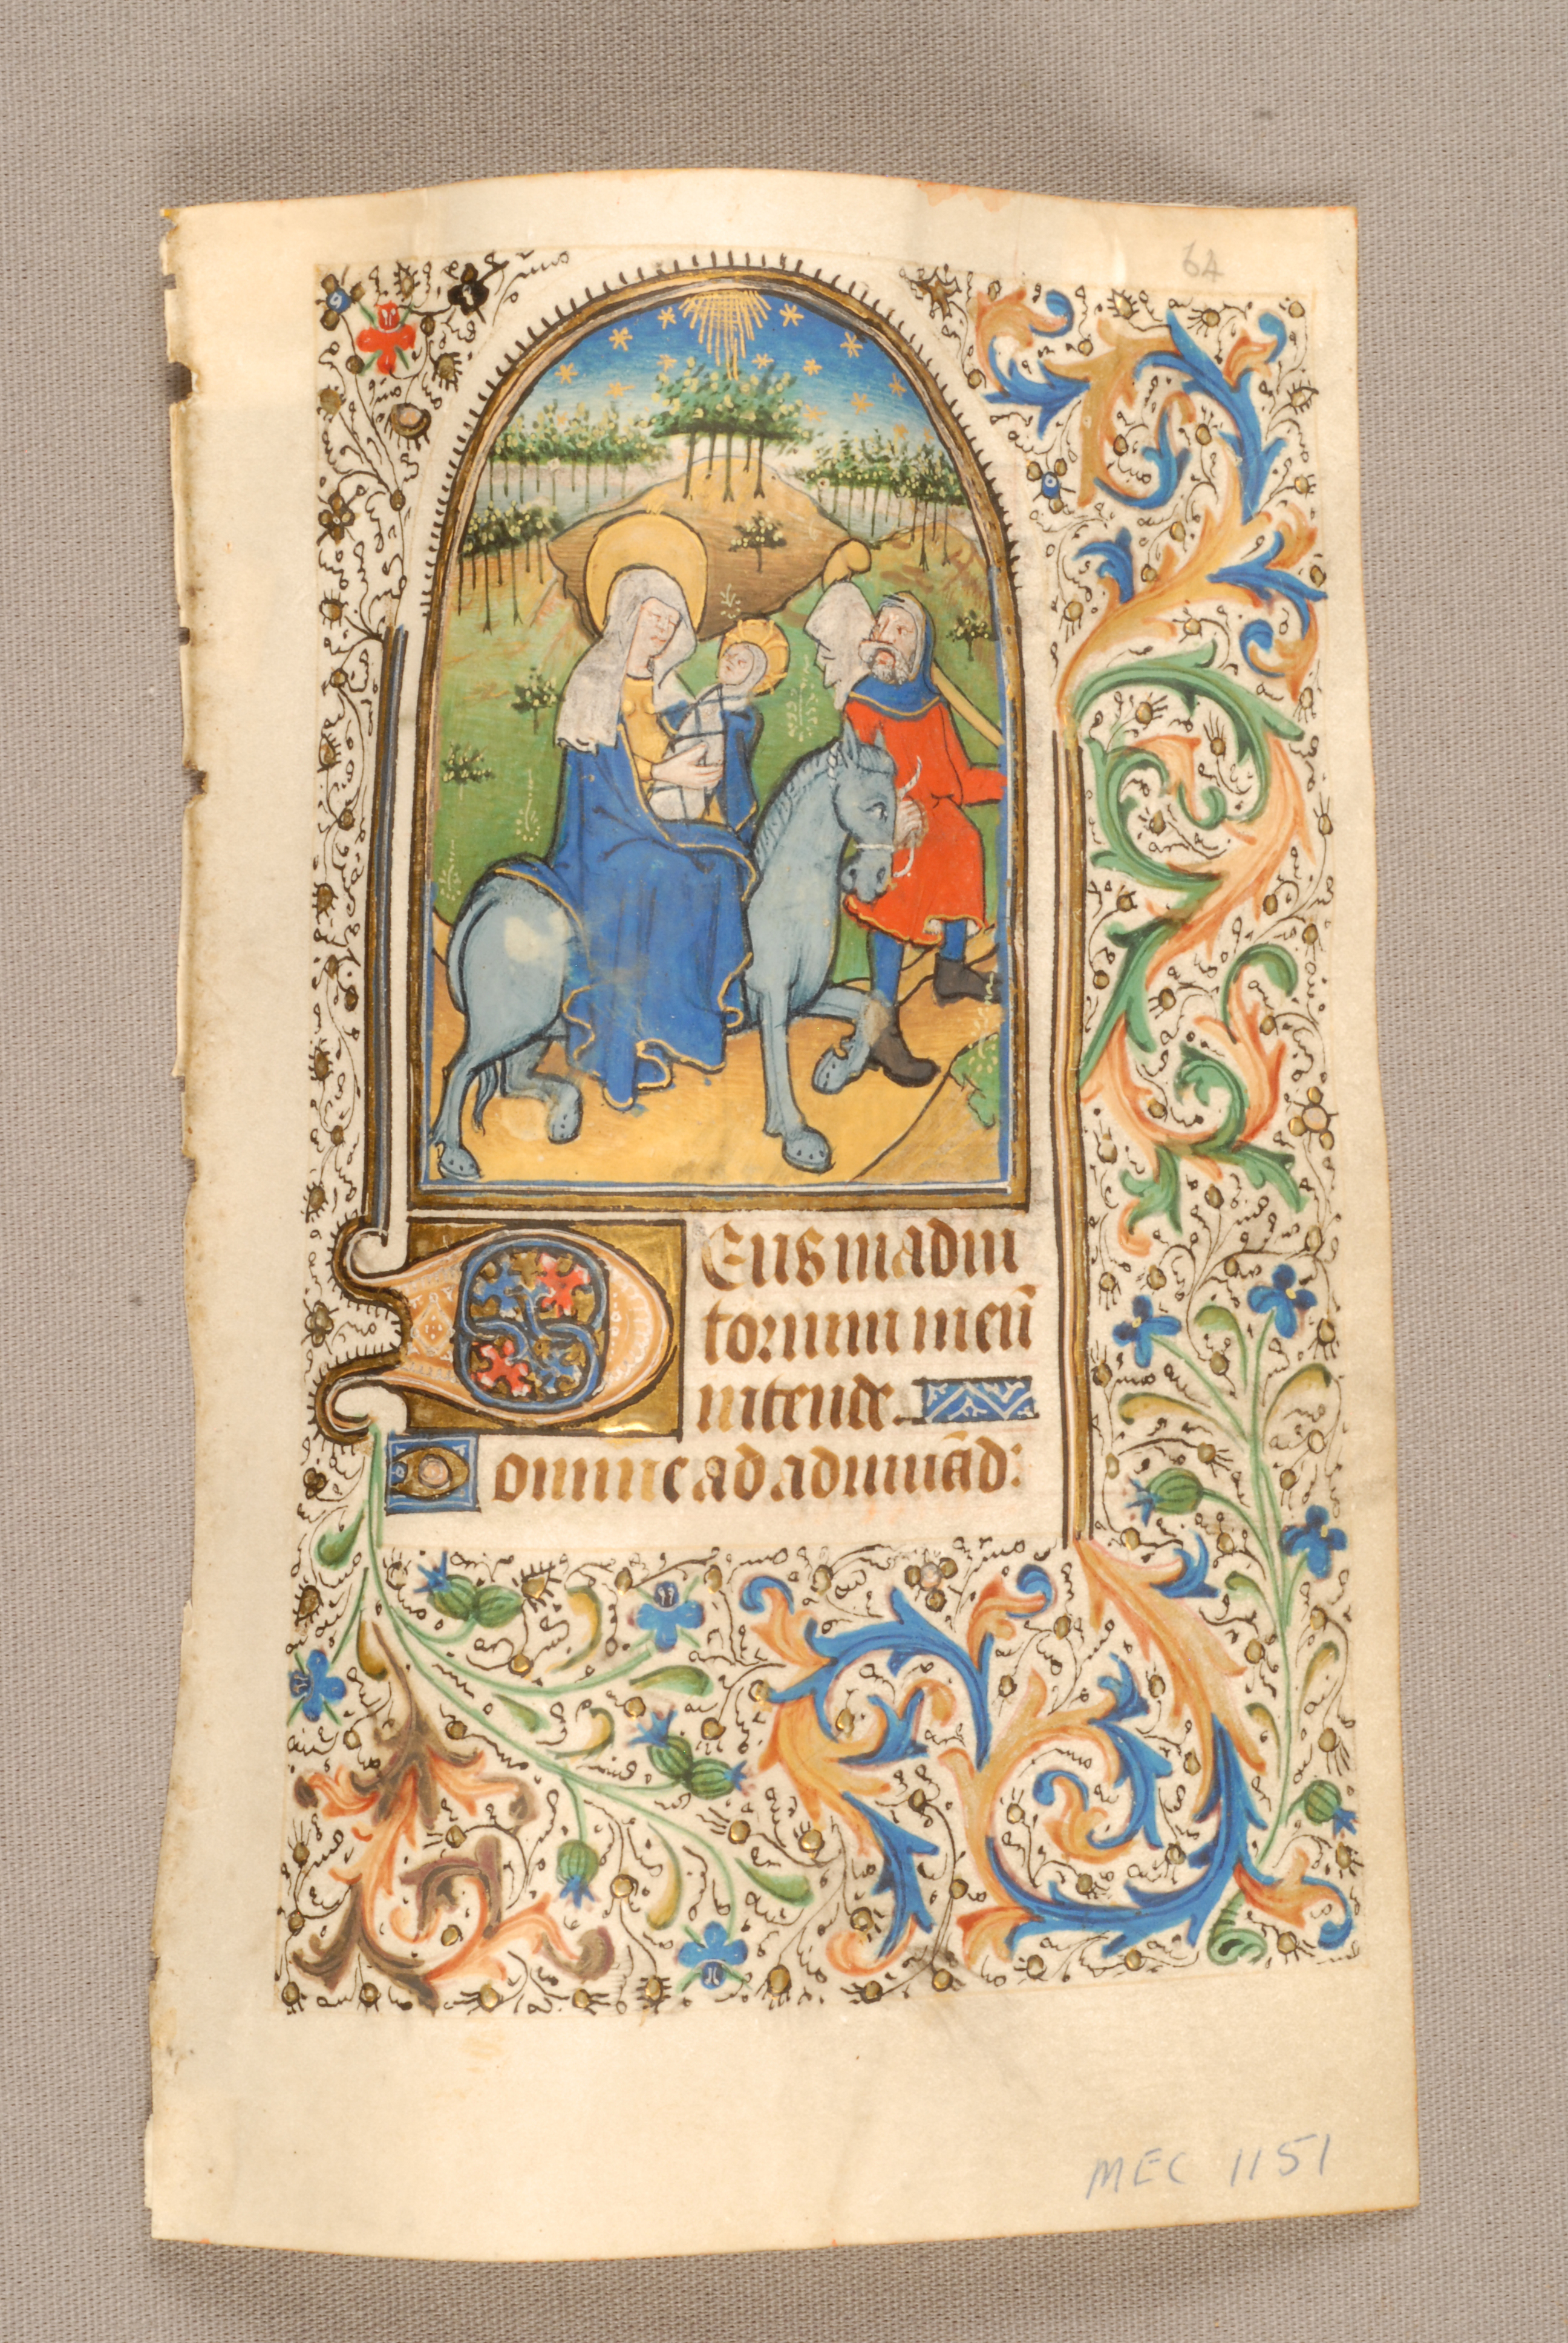 64
Deus in adiu
torium meū
intende.
Domine ad adiuuād:
MEC 1151